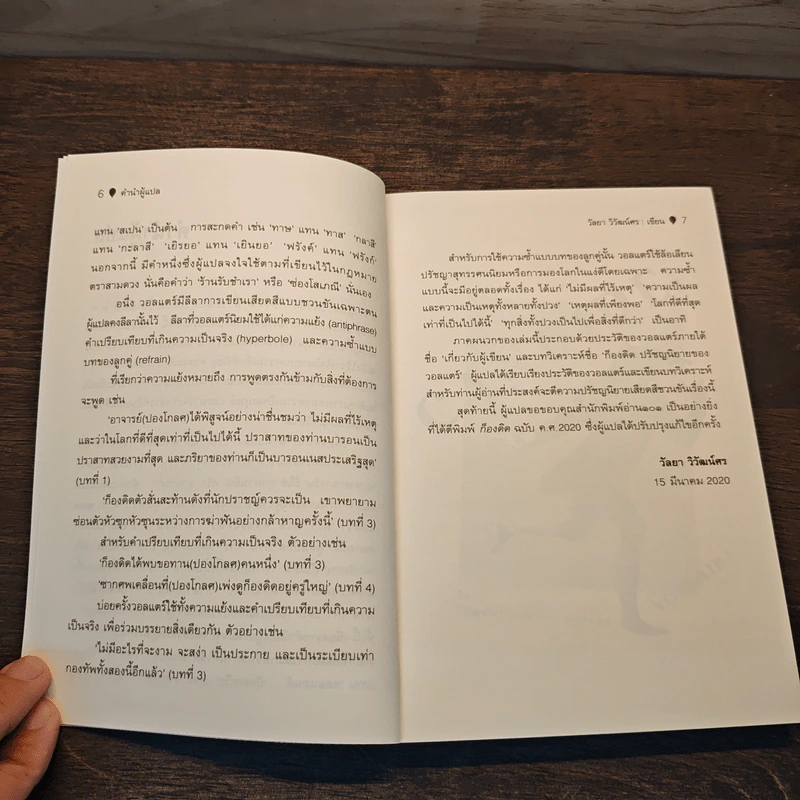 6 คำนำผู้แปล
แทน 'สเปน' เป็นต้น การสะกดคำ เช่น 'ทาษ' แทน 'ทาส' 'กลาสี'
แทน 'กะลาสี' 'เยิรยอ' แทน 'เยินยอ' 'ฟรังค์' แทน 'ฟรังก์'
นอกจากนี้ มีคำหนึ่งซึ่งผู้แปลจงใจใช้ตามที่เขียนไว้ในกฎหมาย
ตราสามดวง นั่นคือคำว่า 'ร้านรับชำเรา' หรือ 'ซ่องโสเภณี' นั่นเอง
อนึ่ง วอลแตร์มีลีลาการเขียนเสียดสีแบบชวนขันเฉพาะตน
ผู้แปลคงลีลานั้นไว้ ลีลาที่วอลแตร์นิยมใช้ได้แก่ความแย้ง (antiphrase)
คำเปรียบเทียบที่เกินความเป็นจริง (hyperbole) และความซ้ำแบบ
บทของลูกคู่ (refrain)
ที่เรียกว่าความแย้งหมายถึง การพูดตรงกันข้ามกับสิ่งที่ต้องการ
จะพูด เช่น
'อาจารย์(ปองโกลศ)ได้พิสูจน์อย่างน่าชื่นชมว่า ไม่มีผลที่ไร้เหตุ
และว่าในโลกที่ดีที่สุดเท่าที่เป็นไปได้นี้ ปราสาทของท่านบารอนเป็น
ปราสาทสวยงามที่สุด และภริยาของท่านก็เป็นบารอนเนสประเสริฐสุด'
(บทที่ 1)
'ก็องดิดตัวสั่นสะท้านดังที่นักปราชญ์ควรจะเป็น เขาพยายาม
ซ่อนตัวหัวซุกหัวซุนระหว่างการฆ่าฟันอย่างกล้าหาญครั้งนี้' (บทที่ 3)
สำหรับคำเปรียบเทียบที่เกินความเป็นจริง ตัวอย่างเช่น
'ก็องดิดได้พบขอทาน(ปองโกลศ)คนหนึ่ง' (บทที่ 3)
'ซากศพเคลื่อนที่(ปองโกลศ)เพ่งดูก็องดิดอยู่ครู่ใหญ่' (บทที่ 4)
บ่อยครั้งวอลแตร์ใช้ทั้งความแย้งและคำเปรียบเทียบที่เกินความ
เป็นจริง เพื่อร่วมบรรยายสิ่งเดียวกัน ตัวอย่างเช่น
'ไม่มีอะไรที่จะงาม จะสง่า เป็นประกาย และเป็นระเบียบเท่า
กองทัพทั้งสองนี้อีกแล้ว' (บทที่ 3)
วัลยา วิวัฒน์ศร : เขียน 7
สำหรับการใช้ความซ้ำแบบบทของลูกคู่นั้น วอลแตร์ใช้ล้อเลียน
ปรัชญาสุทรรศนนิยมหรือการมองโลกในแง่ดีโดยเฉพาะ ความซ้ำ
แบบนี้จะมีอยู่ตลอดทั้งเรื่อง ได้แก่ 'ไม่มีผลที่ไร้เหตุ' 'ความเป็นผล
และความเป็นเหตุทั้งหลายทั้งปวง' 'เหตุผลที่เพียงพอ' 'โลกที่ดีที่สุด
เท่าที่เป็นไปได้' 'ทุกสิ่งทั้งปวงเป็นไปเพื่อสิ่งที่ดีกว่า' เป็นอาทิ
ภาคผนวกของเล่มนี้ประกอบด้วยประวัติของวอลแตร์ภายใต้
ชื่อ 'เกี่ยวกับผู้เขียน' และบทวิเคราะห์ชื่อ 'ก็องดิด ปรัชญนิยายของ
วอลแตร์' ผู้แปลได้เรียบเรียงประวัติของวอลแตร์และเขียนบทวิเคราะห์
สำหรับท่านผู้อ่านที่ประสงค์จะตีความปรัชญนิยายเสียดสีชวนขันเรื่องนี้
สุดท้ายนี้ ผู้แปลขอขอบคุณสำนักพิมพ์อ่าน๑๐๑ เป็นอย่างยิ่ง
ที่ได้ตีพิมพ์ ก็องดิด ฉบับ ค.ศ.2020 ซึ่งผู้แปลได้ปรับปรุงแก้ไขอีกครั้ง
วัลยา วิวัฒน์ศร
15 มีนาคม 2020